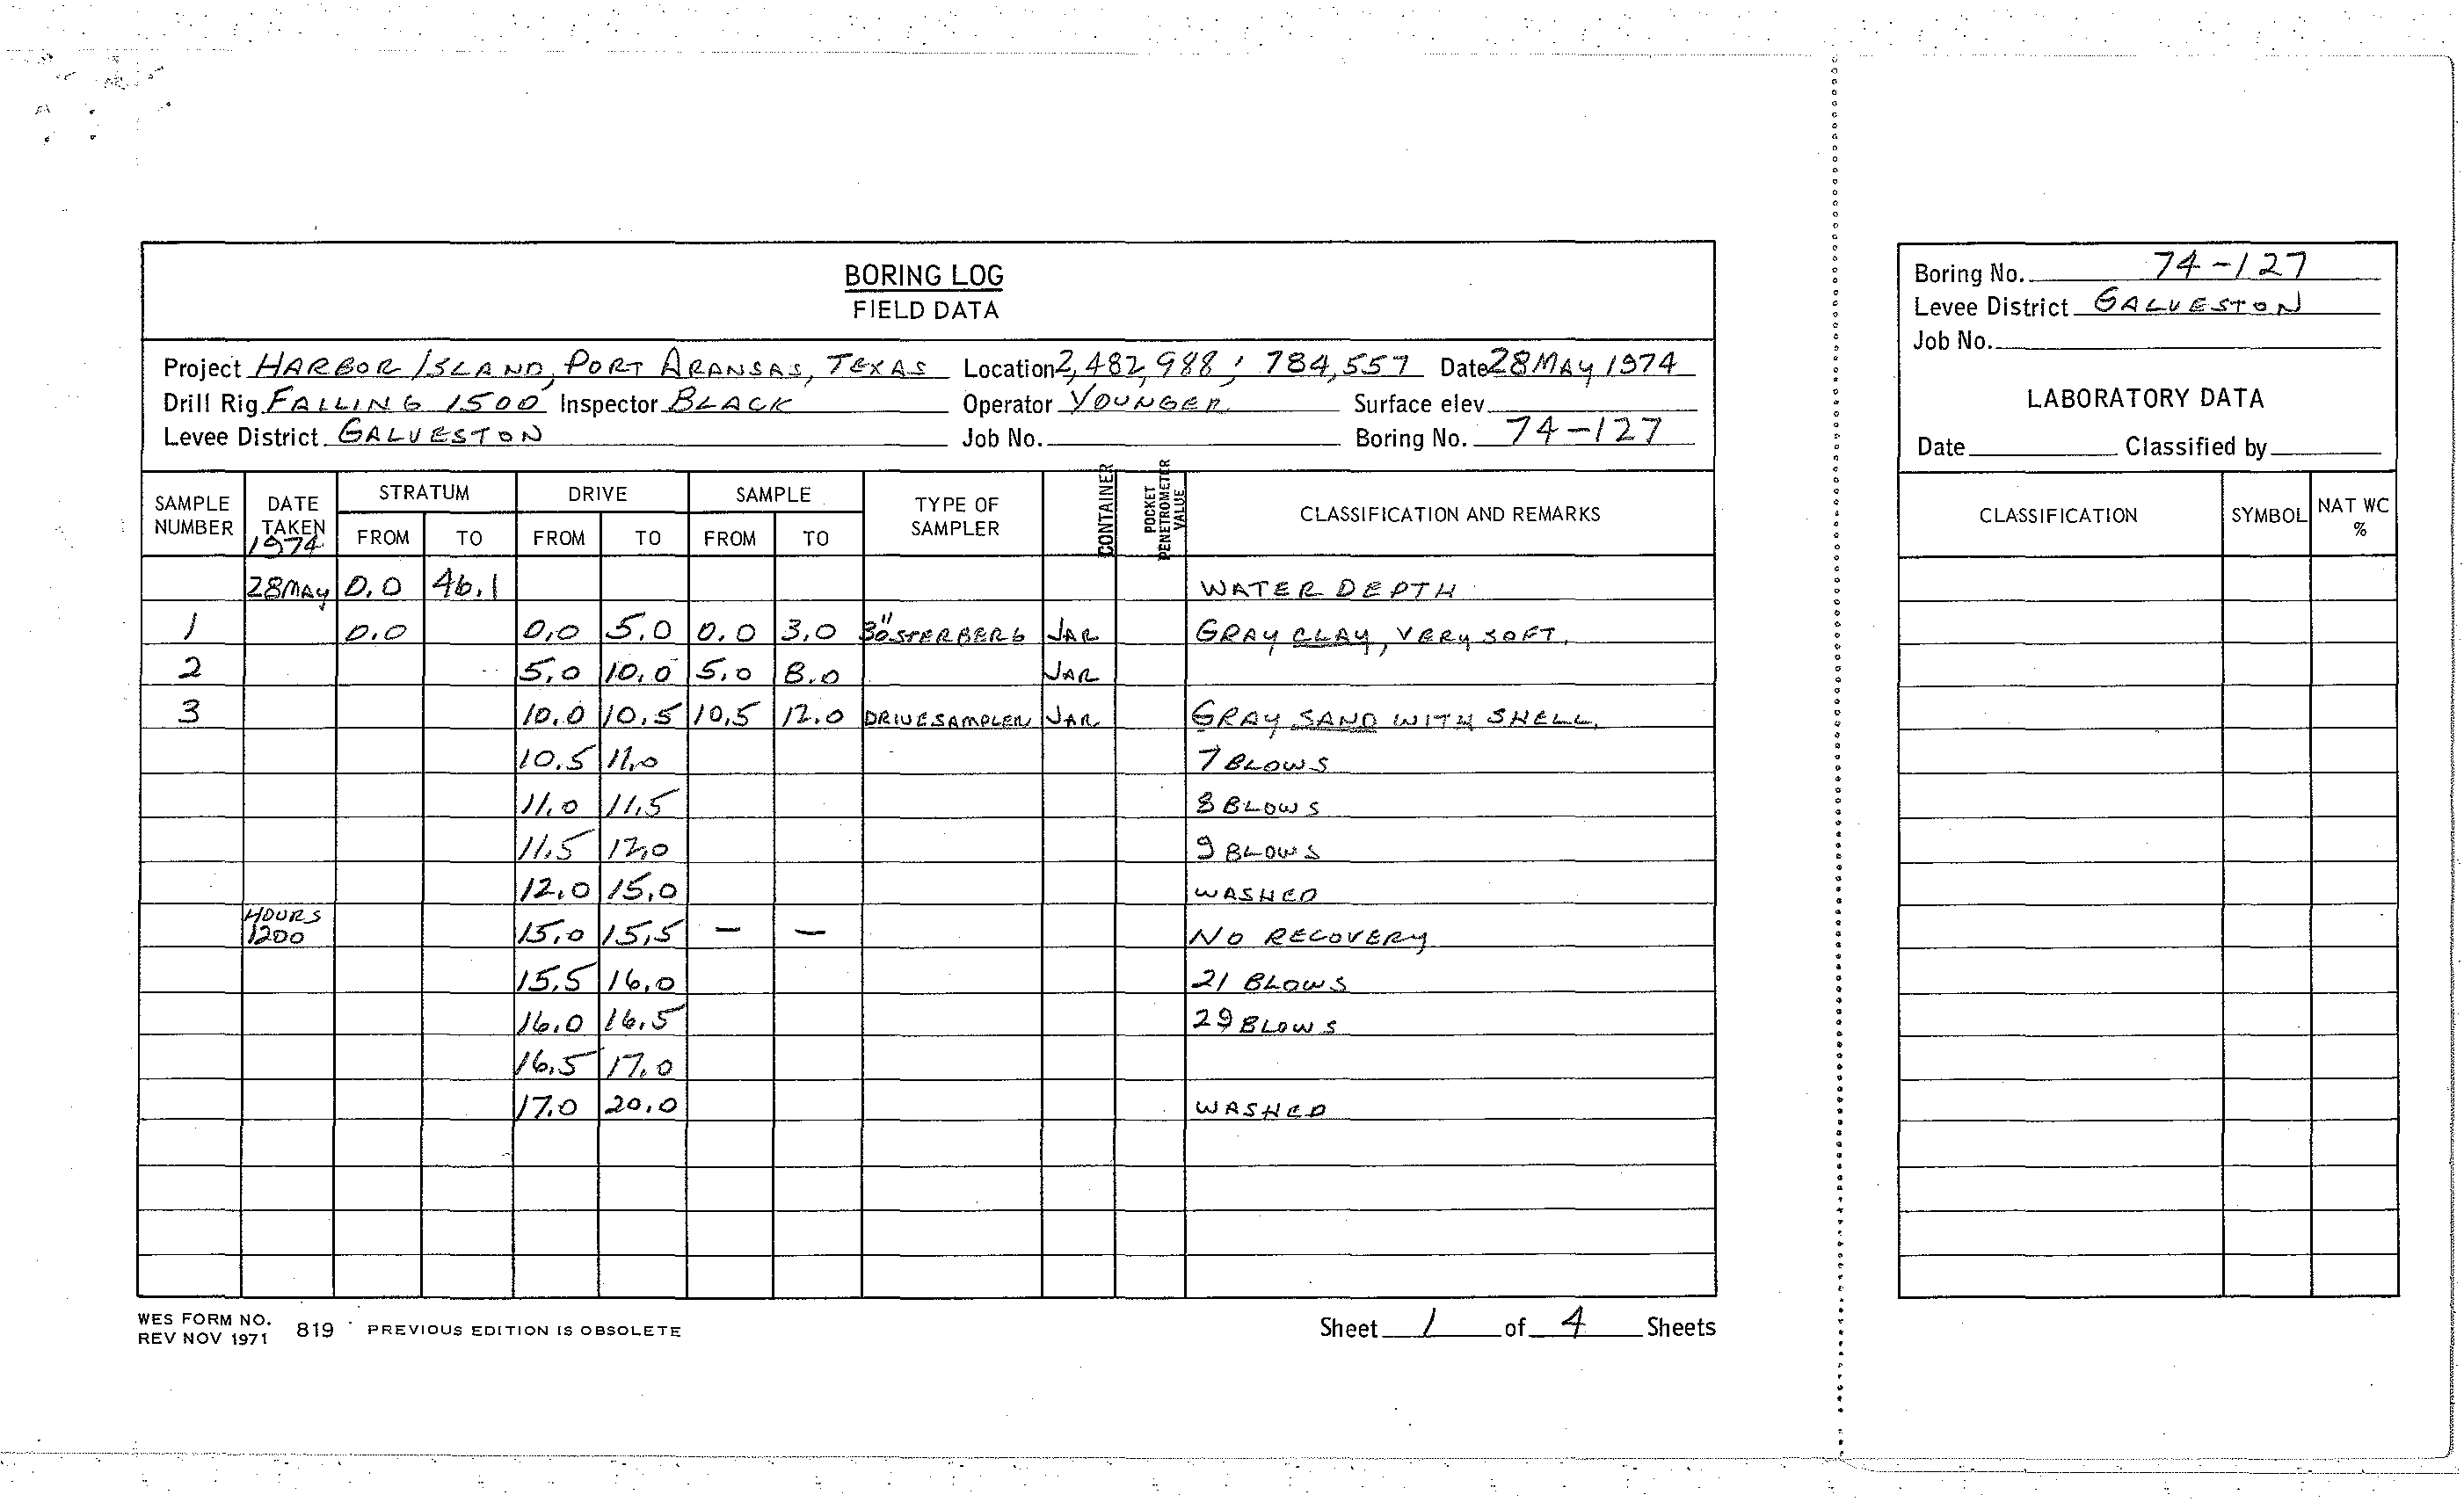 BORING LOG
FIELD DATA
Project HARBOR ISLAND, PORT ARANSAS, TEXAS Location 2,482,988; 784,557 Date 28 MAY 1974
Drill Rig FAILING 1500 Inspector BLACK Operator YOUNGER Surface elev.
Levee District GALVESTON Job No. Boring No. 74-127
SAMPLE NUMBER DATE TAKEN 1974 STRATUM FROM TO DRIVE FROM TO SAMPLE FROM TO TYPE OF SAMPLER CONTAINER POCKET PENETROMETER VALUE CLASSIFICATION AND REMARKS
28 MAY 0.0 46.1 WATER DEPTH
1 0.0 0.0 5.0 0.0 3.0 3" OSTERBERG JAR GRAY CLAY, VERY SOFT.
2 5.0 10.0 5.0 8.0 JAR
3 10.0 10.5 10.5 12.0 DRIVE SAMPLER JAR GRAY SAND WITH SHELL.
10.5 11.0 7 BLOWS
11.0 11.5 8 BLOWS
11.5 12.0 9 BLOWS
12.0 15.0 WASHED
HOURS
1200 15.0 15.5 — — NO RECOVERY
15.5 16.0 21 BLOWS
16.0 16.5 29 BLOWS
16.5 17.0
17.0 20.0 WASHED
WES FORM NO. 819 PREVIOUS EDITION IS OBSOLETE
REV NOV 1971
Sheet 1 of 4 Sheets
Boring No. 74-127
Levee District GALVESTON
Job No.
LABORATORY DATA
Date Classified by
CLASSIFICATION SYMBOL NAT WC %